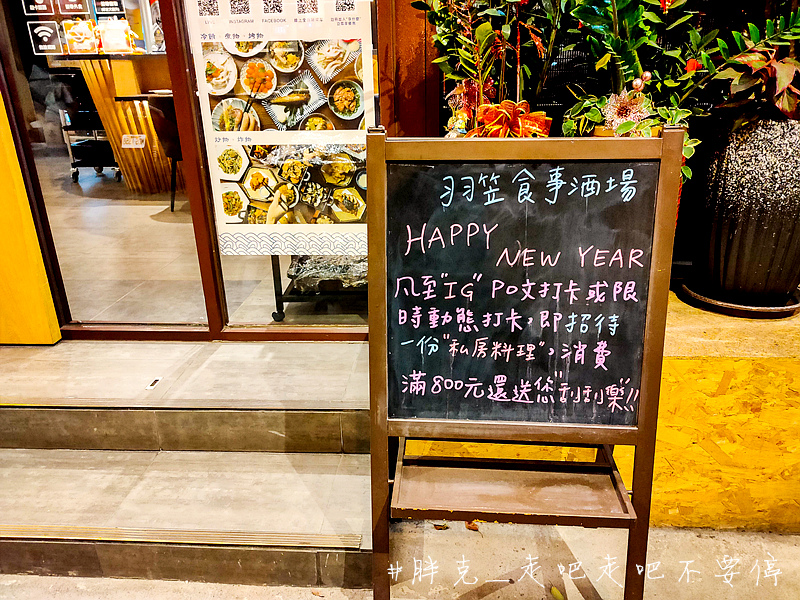 INSTAGRAM
FACEBOOK
羽笠食事酒場
HAPPY
NEW YEAR
凡至"IG"PO文打卡或限
時動態打卡，即招待
一份"私房料理"，消費
滿800元還送您"刮刮樂"!!
#胖克_走吧走吧不要停